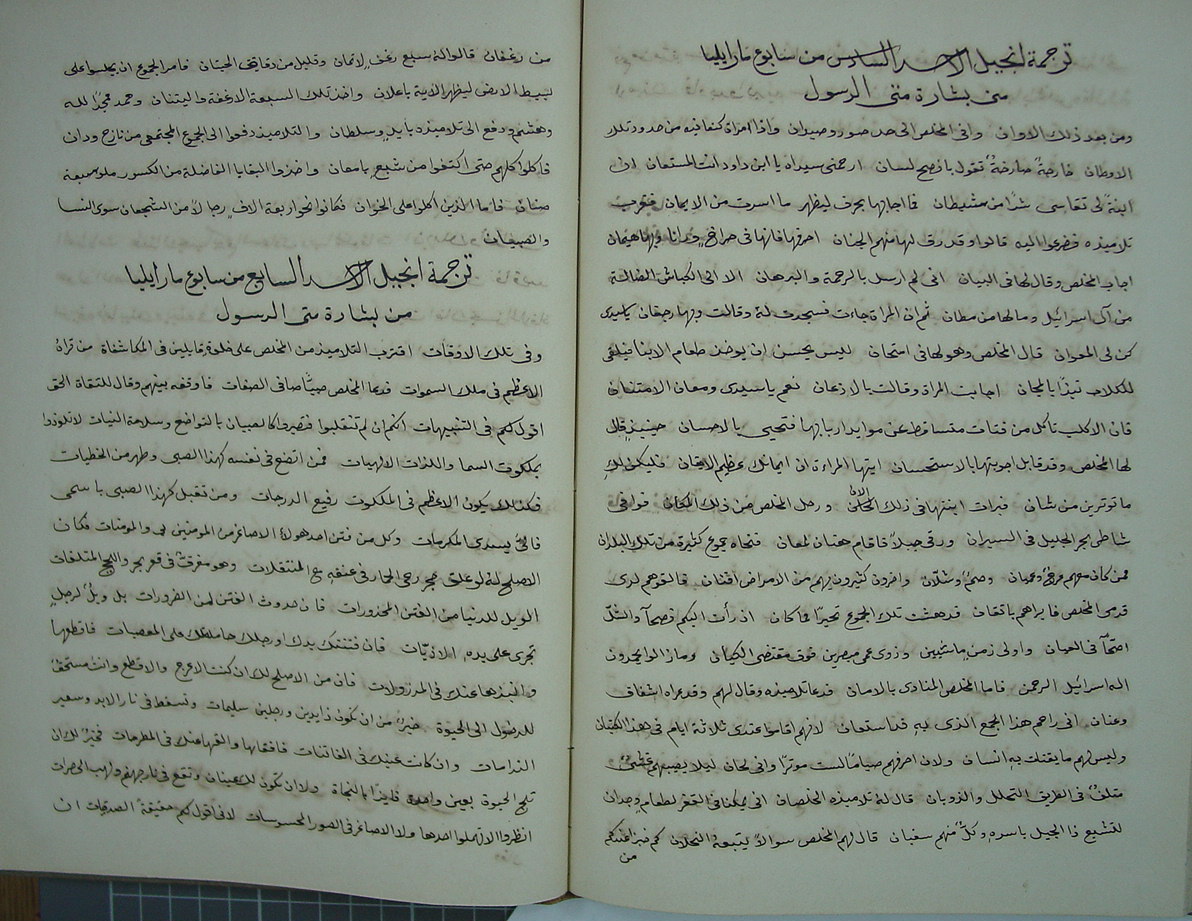 ترجمة انجيل الاحد السادس من سابوع مار ايليا
من بشارة متى الرسول
ومن بعد ذلك الاوان وافى المخلص الى حد صور وصيدان واذا امراة كنعانيه من حدود تلك
الاوطان خارجةً صارخةً تقول بافصح لسان ارحمني سيداه يا ابن داود انت المستعان لان
ابنة لي تقاسى شرًا من شيطان فما اجابها بحرف ليظهر ما اسرت من الايمان فتقربت
تلاميذه فضرعوا اليه قالوا وقد رق لها منهم الجنان اصرفها فانها في صراخ ورانا ولها هيمان
اجاب المخلص وقال لها في البيان انى لم ارسل بالرحمة والبرهان الا الى الكباش الضالة
من آل اسراييل وما لها من مطان ثم ان المراة جاءت فسجدت له وقالت وبها رجفان يا سيدى
كن لى المعوان قال المخلص وهو لها في امتحان ليس يحسن ان يوخذ طعام الابنا فيلقى
للكلاب نبذًا بالمجان اجابت المراة وقالت بالاذعان نعم يا سيدى ومعان الامتنان
فان الاكلب تاكل من فتات متساقط عن موايد اربابها فتحيى بالاحسان حينيذ قال
لها المخلص وقد قابل اجوبتها بالاستحسان ايتها المراءة ان ايمانك عظيم الايقان فليكن لك
ما توثرين من شان فبرات ابنتها في ذلك الان ورحل المخلص من ذلك المكان فوافى
شاطى بحر الجليل في السيران ورقى جبلاً فاقام هنان لمعان فتجاه جموع كثيرة من تلك البلدان
ممن كان معهم عرج وعميان وصمٌ وشلّان واخرون كثيرون بهم من الامراض افنان فالقوهم لدى
قدمى المخلص فابراهم باتقان فدهشت تلك الجموع تحيرًا مما كان اذ رأت البكم فصحآ والشلّ
اصحّآ في العيان واولى زمن ماشيين وذوى عمى مبصرين فوق مقتضى الكيان وما زالوا يمجدون
اله اسراييل الرحمن فاما المخلص المنادى بالامان فدعا تلاميذه وقال لهم وقد عراه اشفاق
وحنان انى راحم هذا المجمع الذى به قد استعان لانهم اقاموا عندى ثلاثة ايام في هذا الكثبان
وليس لهم ما يقتات به انسان ولان اصرفهم صيامًا لست موثرًا وانى لحان ليلا يصبهم
متلفٌ في الطريق التحلل والذوبان قال له تلاميذه الخلصان انى يمكنا في القفر لطعام وجدان
لتشبع ذا الجيل باسره وكلٌ منهم سغبان قال لهم المخلص سوالاً يتبعه النجلان كم خبزًا عندكم
من
من رغفان قالوا له سبع رغفٍ لاتمان وقليل من دقايق الحيتان فامر الجموع ان يجلسوا على
بسيط الارض ليظهر الاية باعلان واخذ تلك السبعة الارغفة والحيتان وحمد ممجدًا لله
وهشم ودفع الى تلاميذه بايدٍ وسلطان والتلاميذ دفعوا الى الجموع المجتمعى من نازح ودان
فاكلوا كلهم حتى اكتفوا من شبع بامعان واخذوا البقايا الفاضلة من الكسور ملو سبعة
صنان فاما الذين اكلوا على الخوان فكانوا نحو اربعة الاف رجالا من الشجعان سوى النسا
والصبيان
ترجمة انجيل الاحد السابع من سابوع مار ايليا
من بشارة متى الرسول
وفى تلك الاوقات اقترب التلاميذ من المخلص على خلوة قايلين في المكاشفاة من تراه
الاعظم في ملك السموات فدعا المخلص صبيًا صافى الصفات فاوقفه بينهم وقال للتقاة الحق
اقول لكم في التنبيهات انكم ان لم تنقلبوا فتصيروا كالصبيان بالتواضع وسلامة النيات لا تلوذوا
بملكوت السما واللذات الالهيات فمن اتضع في نفسه كهذا الصبى وطهر من الخطيات
فكذلك يكون الاعظم في الملكوت رفيع الدرجات ومن تقبل كهذا الصبي باسمى
فالىّ يسدى المكرمات وكل من فتن احد هولاء الاصاغر من المومنين بى والمومنات فكان
الاصلح له لو علق حجر رحى الحمار في عنقه مع المثقلات وهو مغرق في قعر بحر واللجج المتلفات
الويل للدنيا من الفتن المحذورات فان حدوث الفتن لمن الضرورات بل ويلٌ لرجل
تجرى على يده الاذيّات فان فتنتك يدك او رجلك حاملتك على المعصيات فاقطعها
وانبذها عنك في المرذولات فان من الاصلح لك ان كنت الاعرج والاقطع وانت مستحق
للدخول الى الحيوة خيرٌ من ان تكون ذا يدين ورجلين سليمات وتسقط في نار الابد وسعير
الندامات وان كانت عينك في الفاتنات فافقاها والقها عنك في المطرحات فخيرٌ لك ان
تلج الحيوة بعين واحدة فايزًا بالنجاة ولا ان تكون لك عينان وتقع في نار جهنم ولهب الجمرات
انظروا الا تهملوا احدها ولا الاصاغر في الصور المحسوسات لانى اقول لكم حقيقةً الصدقيات ان